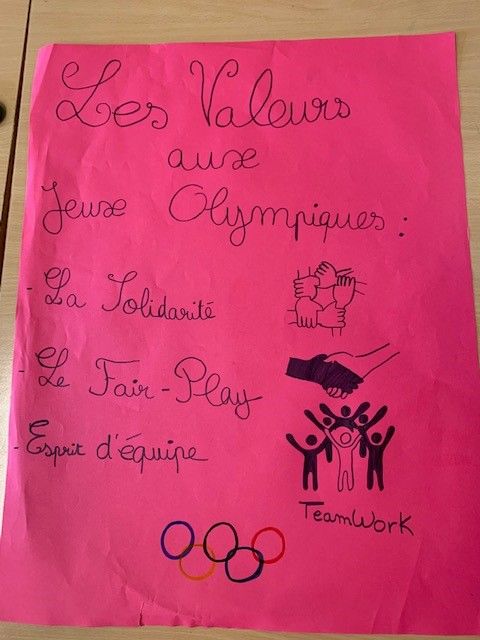 Les Valeurs
aux
Jeux Olympiques :
- La Solidarité
- Le Fair-Play
- Esprit d'équipe
TeamWork